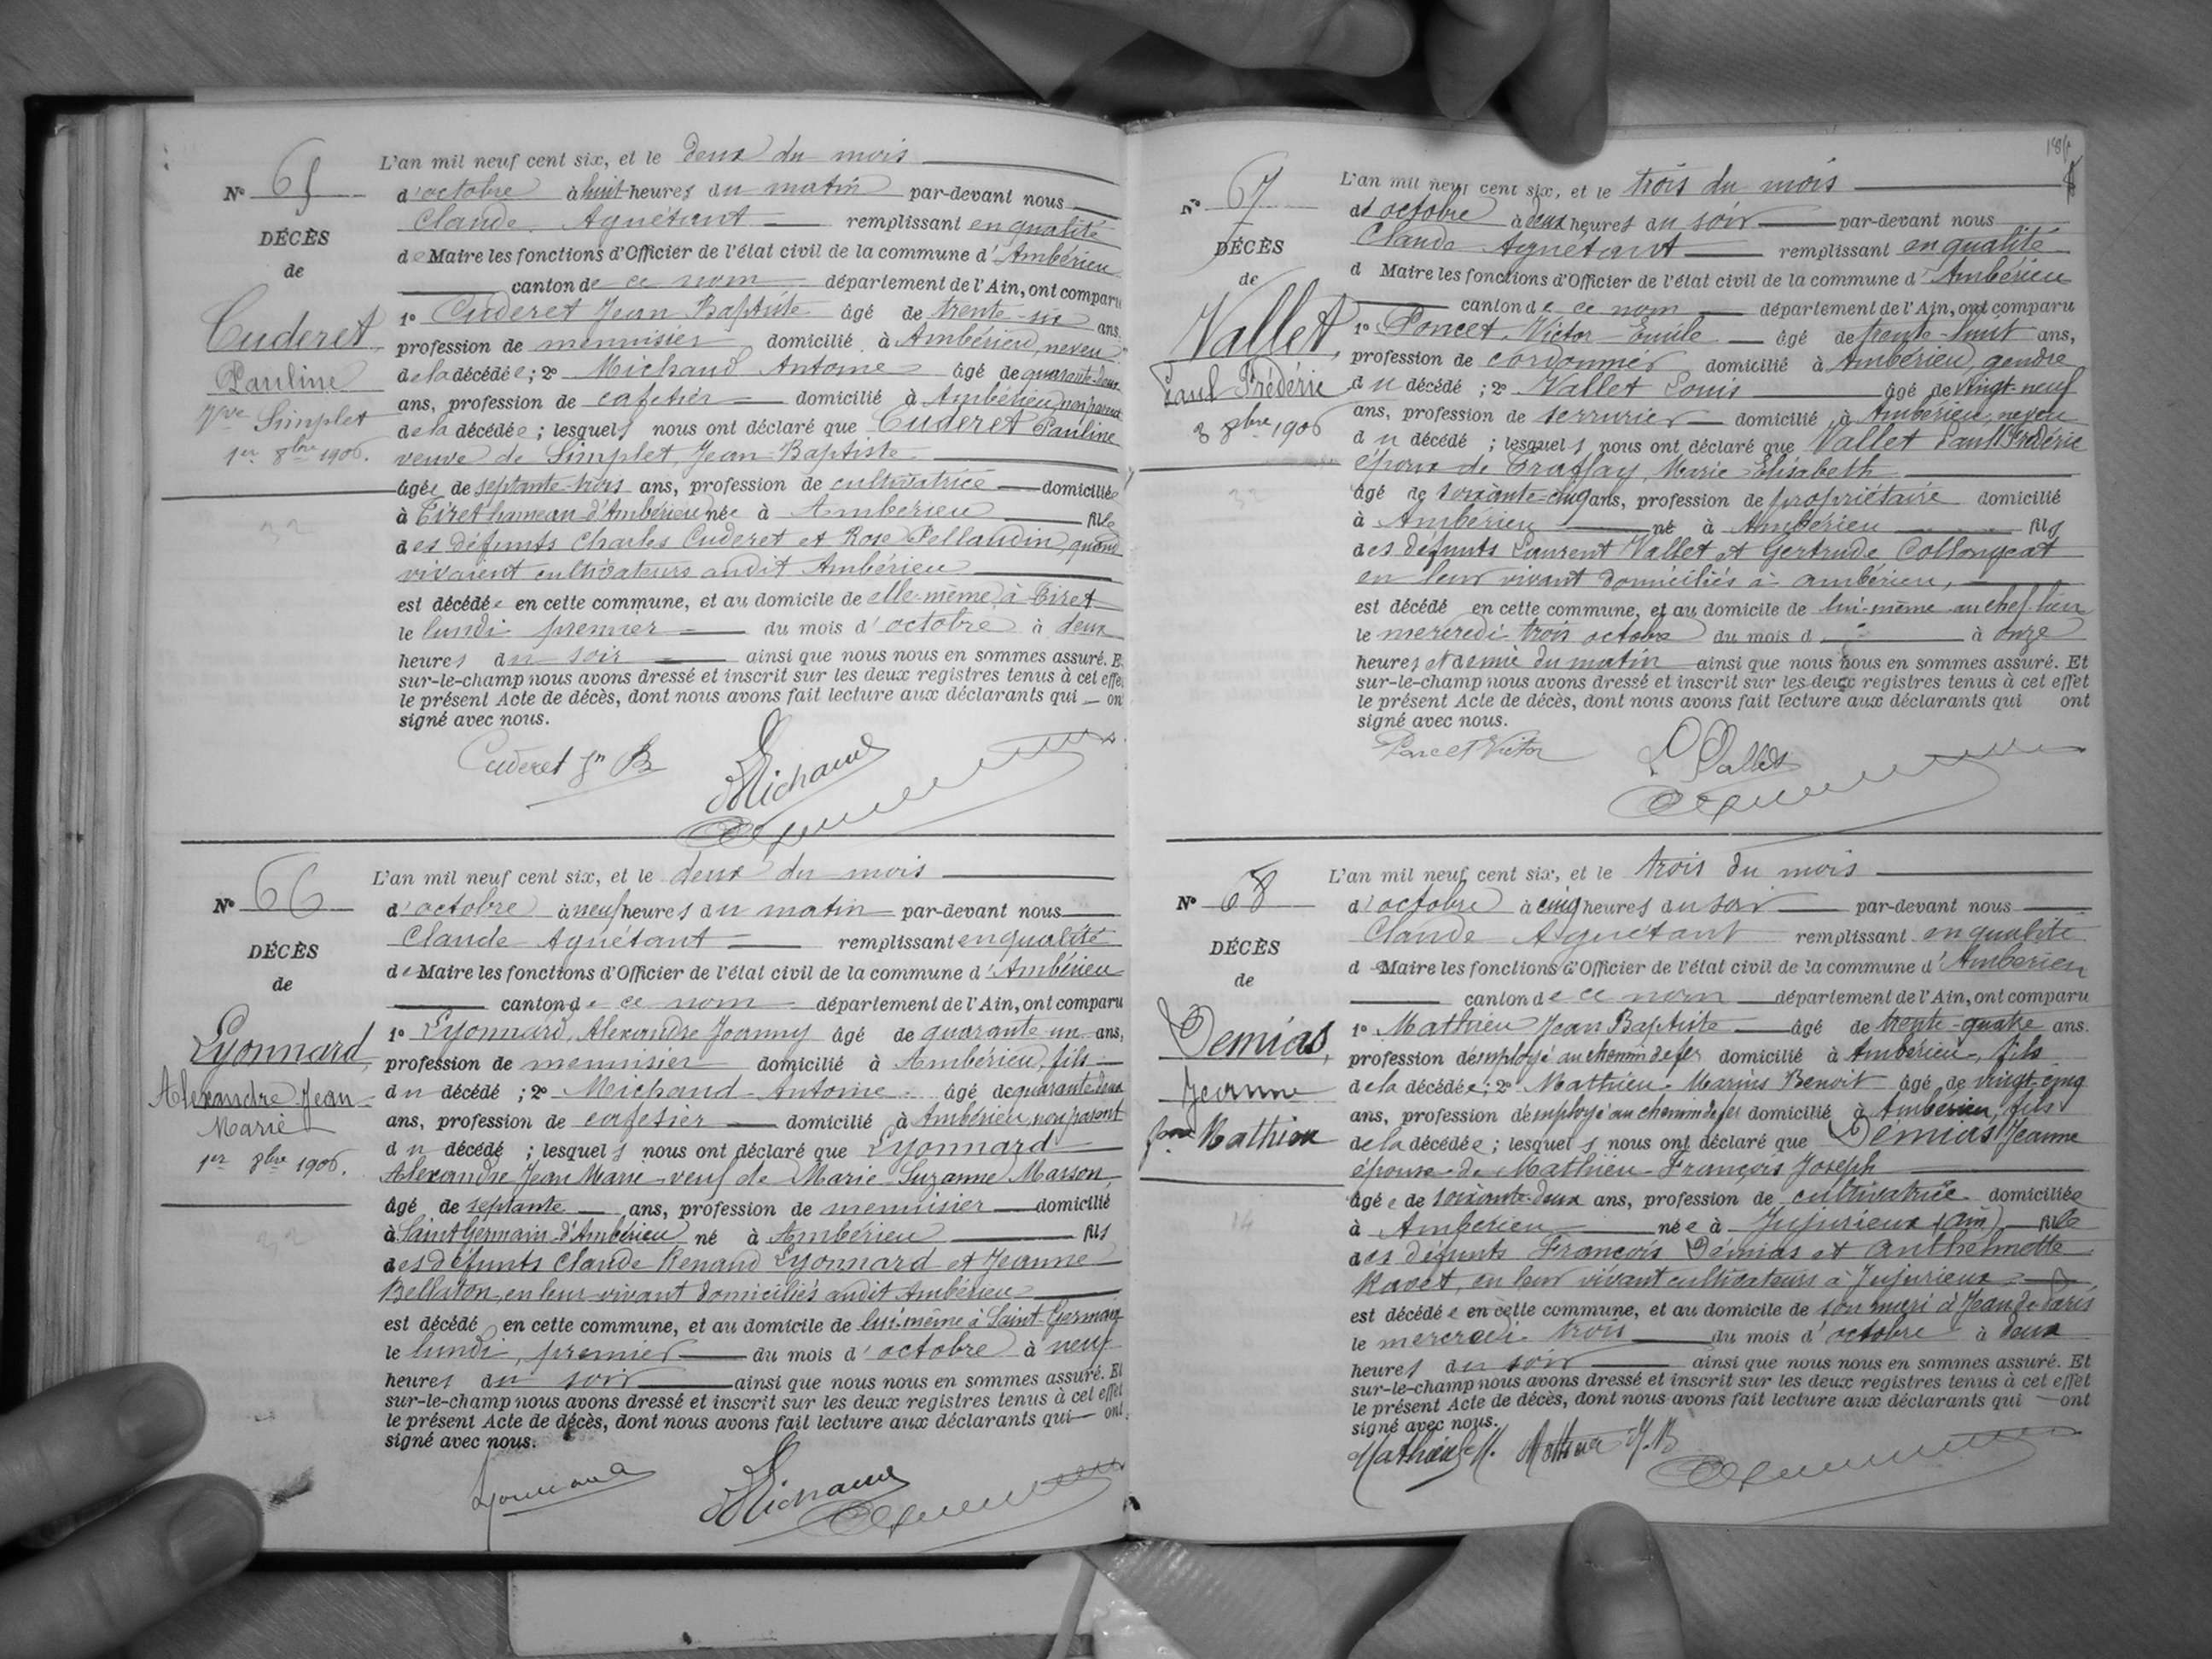 Nº 65
DÉCÈS
de
Cuderet
Pauline
Vve Simplet
1er 8bre 1906.
L'an mil neuf cent six, et le deux du mois
d'octobre à huit heures du matin par-devant nous
Claude Agnétant remplissant en qualité
de Maire les fonctions d'Officier de l'état civil de la commune d'Ambérieu
canton de ce nom département de l'Ain, ont comparu
1º Cuderet Jean Baptiste âgé de trente-six ans
profession de menuisier domicilié à Ambérieu, neveu
de la décédée; 2º Michaud Antoine âgé de quarante-deux
ans, profession de cafetier domicilié à Ambérieu, non parent
de la décédée; lesquels nous ont déclaré que Cuderet Pauline
veuve de Simplet, Jean-Baptiste
âgée de septante-trois ans, profession de cultivatrice domiciliée
à Tiret hameau d'Ambérieu née à Ambérieu fille
des défunts Charles Cuderet et Rose Pellaudin, quand
vivaient cultivateurs audit Ambérieu
est décédée en cette commune, et au domicile de elle-même, à Tiret
le lundi premier du mois d'octobre à deux
heures du soir ainsi que nous nous en sommes assuré. E
sur-le-champ nous avons dressé et inscrit sur les deux registres tenus à cet effe
le présent Acte de décès, dont nous avons fait lecture aux déclarants qui on
signé avec nous.
Cuderet Jn B Michaud
Nº 66
DÉCÈS
de
Lyonnard
Alexandre Jean
Marie
1er 8bre 1906.
L'an mil neuf cent six, et le deux du mois
d'octobre à neuf heures du matin par-devant nous
Claude Agnétant remplissant en qualité
de Maire les fonctions d'Officier de l'état civil de la commune d'Ambérieu
canton de ce nom département de l'Ain, ont comparu
1º Lyonnard, Alexandre Joanny âgé de quarante-un ans,
profession de menuisier domicilié à Ambérieu, fils
du décédé; 2º Michaud Antoine âgé de quarante deux
ans, profession de cafetier domicilié à Ambérieu, non parent
du décédé; lesquels nous ont déclaré que Lyonnard
Alexandre Jean Marie veuf de Marie Suzanne Masson,
âgé de septante ans, profession de menuisier domicilié
à Saint Germain d'Ambérieu né à Ambérieu fils
des défunts Claude Renaud Lyonnard et Jeanne
Bellaton, en leur vivant domiciliés audit Ambérieu
est décédé en cette commune, et au domicile de lui-même à Saint-Germain
le lundi, premier du mois d'octobre à neuf
heures du soir ainsi que nous nous en sommes assuré. Et
sur-le-champ nous avons dressé et inscrit sur les deux registres tenus à cet effet
le présent Acte de décès, dont nous avons fait lecture aux déclarants qui ont
signé avec nous.
Lyonnard Michaud
Nº 67
DÉCÈS
de
Vallet,
Paul Frédéric
3 8bre 1906
L'an mil neuf cent six, et le trois du mois
d'octobre à deux heures du soir par-devant nous
Claude Agnétant remplissant en qualité
d Maire les fonctions d'Officier de l'état civil de la commune d'Ambérieu
canton de ce nom département de l'Ain, ont comparu
1º Poncet, Victor Emile âgé de trente-huit ans,
profession de cordonnier domicilié à Ambérieu, gendre
du décédé; 2º Vallet Louis âgé de vingt-neuf
ans, profession de serrurier domicilié à Ambérieu, neveu
du décédé; lesquels nous ont déclaré que Vallet Paul Frédéric
époux de Traffay, Marie Elisabeth
âgé de soixante-cinq ans, profession de propriétaire domicilié
à Ambérieu né à Ambérieu fils
des défunts Laurent Vallet et Gertrude Collongeat
en leur vivant domiciliés à Ambérieu,
est décédé en cette commune, et au domicile de lui-même au chef-lieu
le mercredi trois octobre du mois d à onze
heures et demie du matin ainsi que nous nous en sommes assuré. Et
sur-le-champ nous avons dressé et inscrit sur les deux registres tenus à cet effet
le présent Acte de décès, dont nous avons fait lecture aux déclarants qui ont
signé avec nous.
Poncet Victor L. Vallet
Nº 68
DÉCÈS
de
Demias,
Jeanne
fme Mathieu
L'an mil neuf cent six, et le trois du mois
d'octobre à cinq heures du soir par-devant nous
Claude Agnétant remplissant en qualité
d Maire les fonctions d'Officier de l'état civil de la commune d'Ambérieu
canton de ce nom département de l'Ain, ont comparu
1º Mathieu Jean Baptiste âgé de trente-quatre ans.
profession d'employé au chemin de fer domicilié à Ambérieu, fils
de la décédée; 2º Mathieu Marius Benoit âgé de vingt-cinq
ans, profession d'employé au chemin de fer domicilié à Ambérieu, fils
de la décédée; lesquels nous ont déclaré que Démias Jeanne
épouse de Mathieu François Joseph
âgée de soixante-deux ans, profession de cultivatrice domiciliée
à Ambérieu née à Jujurieux (Ain) fille
des défunts François Démias et Anthelmette
Ravet, en leur vivant cultivateurs à Jujurieux
est décédée en cette commune, et au domicile de son mari à Jean de Paris
le mercredi trois du mois d'octobre à deux
heures du soir ainsi que nous nous en sommes assuré. Et
sur-le-champ nous avons dressé et inscrit sur les deux registres tenus à cet effet
le présent Acte de décès, dont nous avons fait lecture aux déclarants qui ont
signé avec nous.
Mathieu M. Mathieu J.B